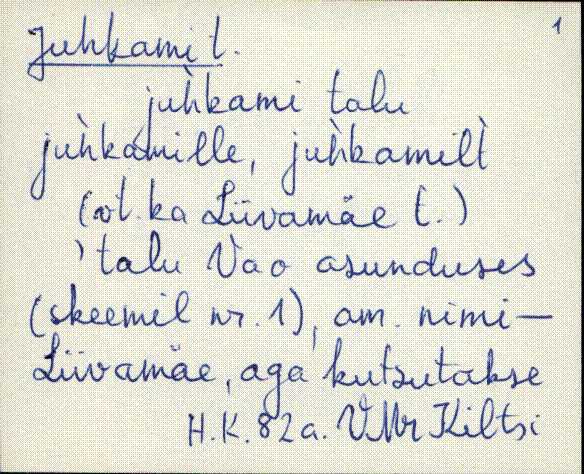 1
Juhkami t.
juh̀kami talu
juh̀kamille, juh̀kamilt̀
(vt. ka Liivamäe t.)
'talu Vao asunduses
(skeemil nr. 1), am. nimi—
Liivamäe, aga kutsutakse
H.K. 82a. VMr Kiltsi